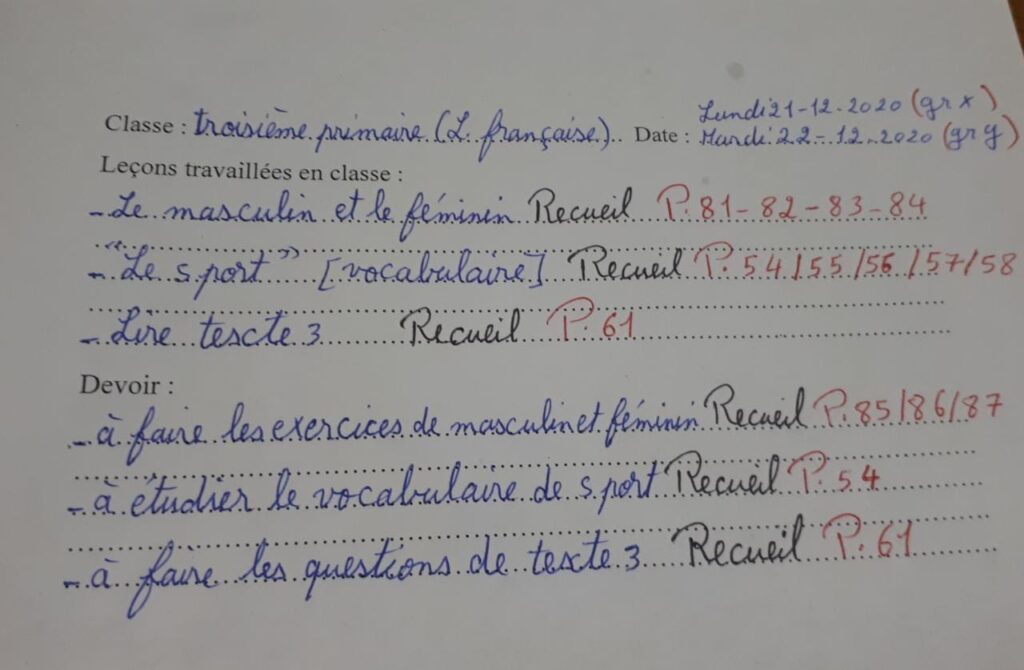 Lundi 21-12-2020 (gr x)
Classe : troisième primaire (L. française) Date : Mardi 22-12-2020 (gr y)
Leçons travaillées en classe :
- Le masculin et le féminin Recueil P. 81-82-83-84
- "Le sport" [vocabulaire] Recueil P. 54/55/56/57/58
- Lire texte 3 Recueil P. 61
Devoir :
- à faire les exercices de masculin et féminin Recueil P. 85/86/87
- à étudier le vocabulaire de sport Recueil P. 54
- à faire les questions de texte 3 Recueil P. 61